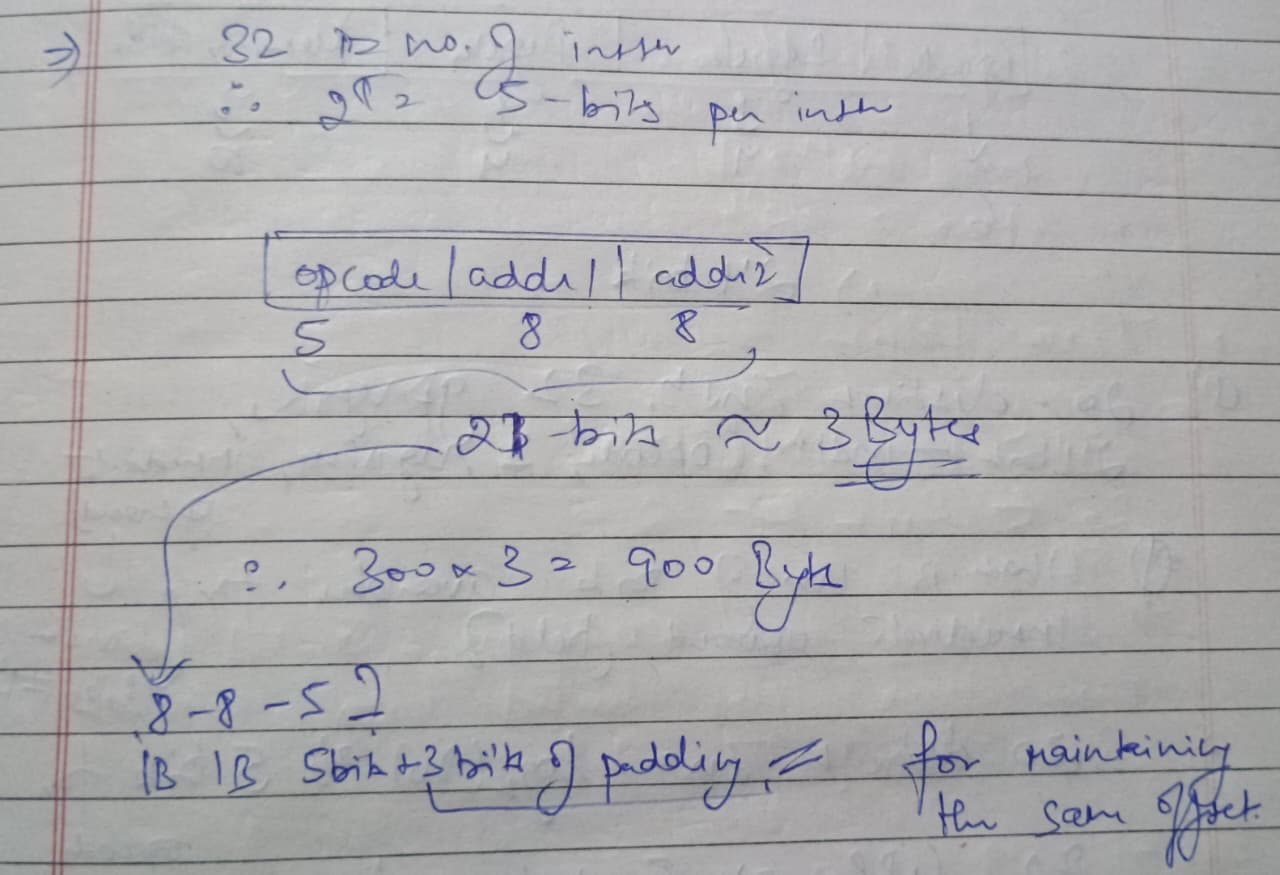 ⇒ 32 ⇒ no. of instr
∴ 2⁵ = 5-bits per instr
opcode | addr1 | addr2
5 8 8
21-bits ≈ 3 Bytes
∴ 300 × 3 = 900 Byte
8-8-5
1B 1B 5bits+3bits of padding for maintaining
the same offset.